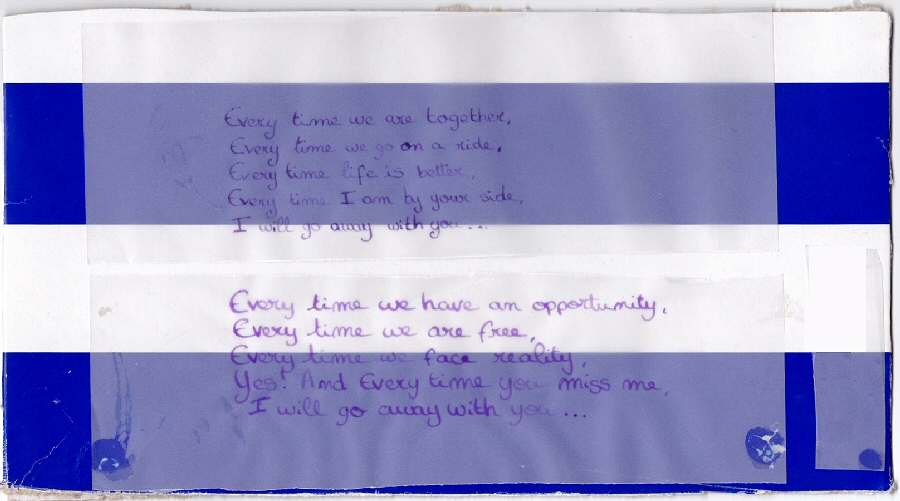 Every time we are together,
Every time we go on a ride,
Every time life is better,
Every time I am by your side,
I will go away with you...
Every time we have an opportunity,
Every time we are free,
Every time we face reality,
Yes! And Every time you miss me,
I will go away with you ...